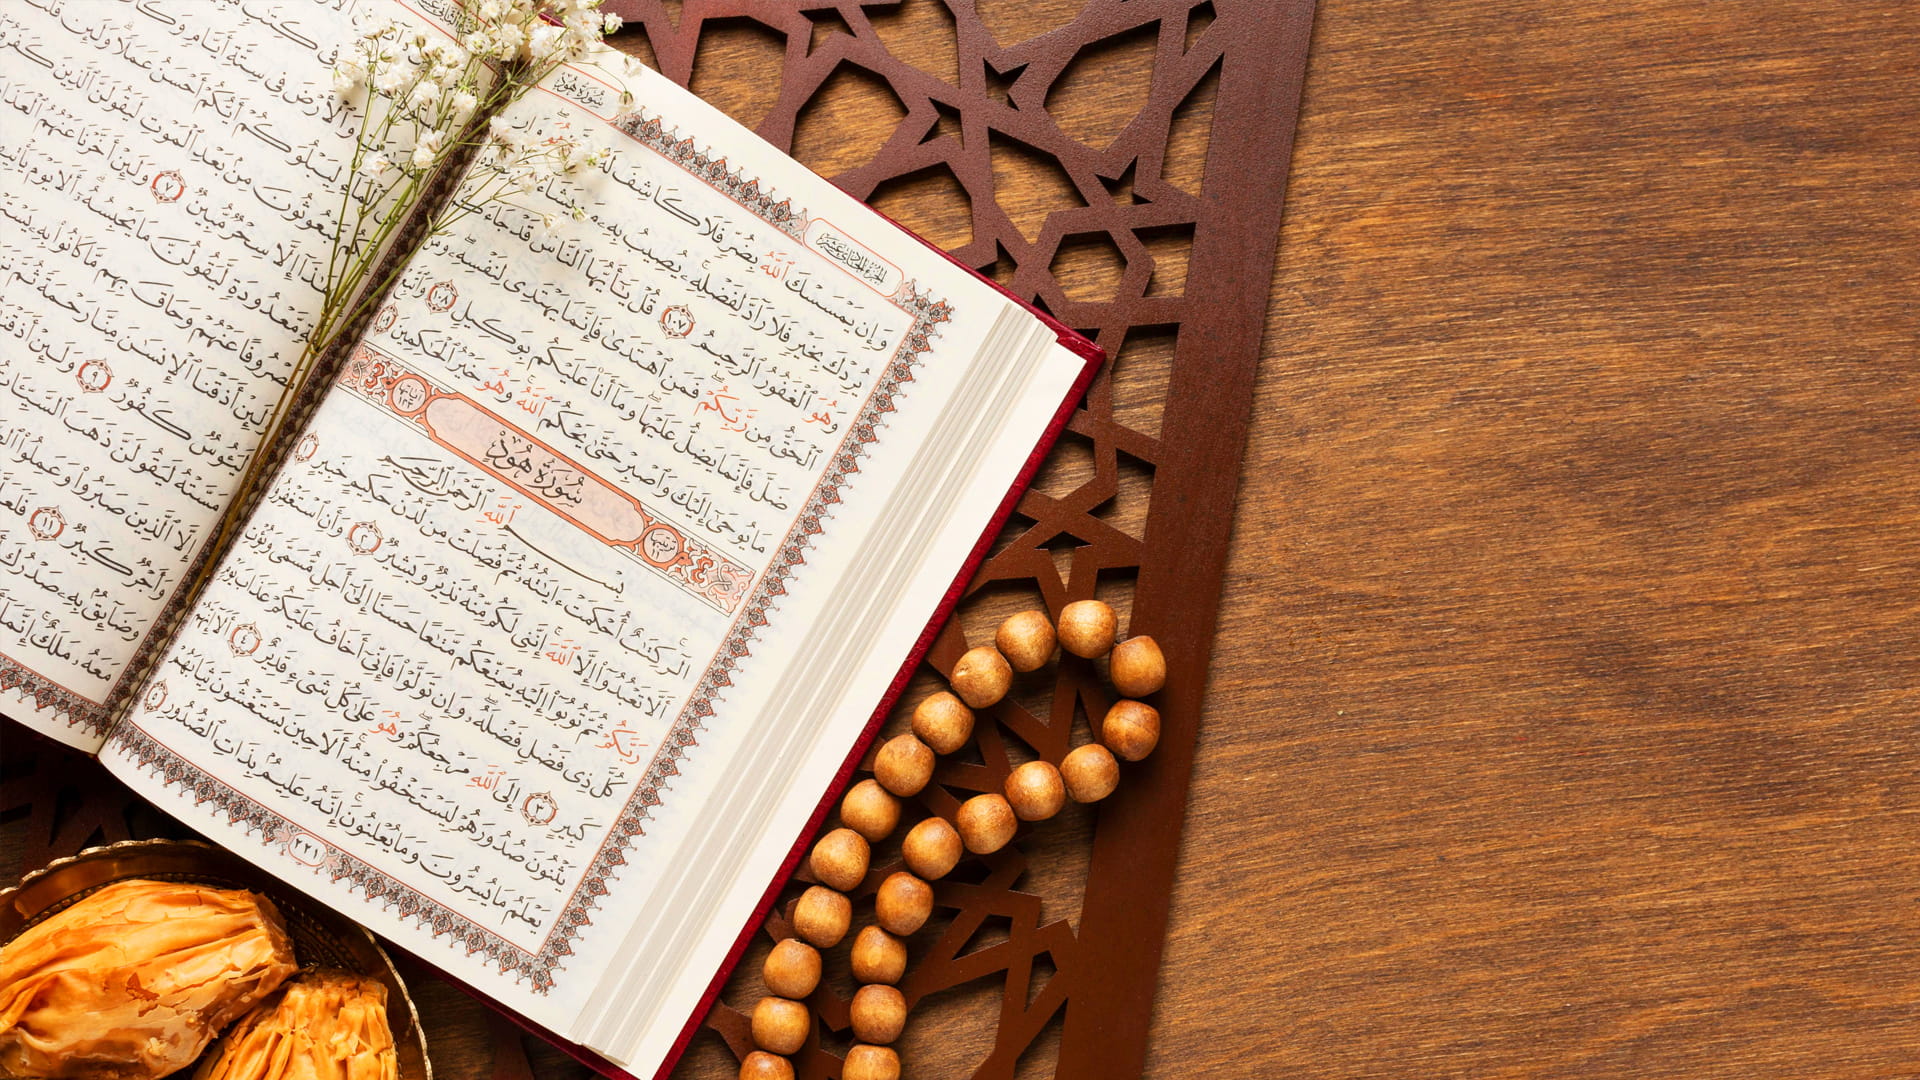 سُورَةُ هُودٍ
الجزء الحادى عشر
وَإِن يَمْسَسْكَ ٱللَّهُ بِضُرٍّ فَلَا كَاشِفَ لَهُۥٓ هُوَ وَإِن
يُرِدْكَ بِخَيْرٍ فَلَا رَآدَّ لِفَضْلِهِۦ يُصِيبُ بِهِۦ مَن يَشَآءُ
وَهُوَ ٱلْغَفُورُ ٱلرَّحِيمُ ١٠٧ قُلْ يَٰٓأَيُّهَا ٱلنَّاسُ قَدْ جَآءَكُمُ
ٱلْحَقُّ مِن رَّبِّكُمْ فَمَنِ ٱهْتَدَىٰ فَإِنَّمَا يَهْتَدِى لِنَفْسِهِۦ وَمَن
ضَلَّ فَإِنَّمَا يَضِلُّ عَلَيْهَا وَمَآ أَنَا۠ عَلَيْكُم بِوَكِيلٍ ١٠٨ وَٱتَّبِعْ
مَا يُوحَىٰٓ إِلَيْكَ وَٱصْبِرْ حَتَّىٰ يَحْكُمَ ٱللَّهُ وَهُوَ خَيْرُ ٱلْحَٰكِمِينَ ١٠٩
ترتيبها ١١ سُورَةُ هُودٍ آياتها ١٢٣
بِسْمِ ٱللَّهِ ٱلرَّحْمَٰنِ ٱلرَّحِيمِ
الٓر كِتَٰبٌ أُحْكِمَتْ ءَايَٰتُهُۥ ثُمَّ فُصِّلَتْ مِن لَّدُنْ حَكِيمٍ خَبِيرٍ ١
أَلَّا تَعْبُدُوٓا۟ إِلَّا ٱللَّهَ إِنَّنِى لَكُم مِّنْهُ نَذِيرٌ وَبَشِيرٌ ٢ وَأَنِ ٱسْتَغْفِرُوا۟
رَبَّكُمْ ثُمَّ تُوبُوٓا۟ إِلَيْهِ يُمَتِّعْكُم مَّتَٰعًا حَسَنًا إِلَىٰٓ أَجَلٍ مُّسَمًّى وَيُؤْتِ
كُلَّ ذِى فَضْلٍ فَضْلَهُۥ وَإِن تَوَلَّوْا۟ فَإِنِّىٓ أَخَافُ عَلَيْكُمْ عَذَابَ يَوْمٍ
كَبِيرٍ ٣ إِلَى ٱللَّهِ مَرْجِعُكُمْ وَهُوَ عَلَىٰ كُلِّ شَىْءٍ قَدِيرٌ ٤ أَلَآ إِنَّهُمْ
يَثْنُونَ صُدُورَهُمْ لِيَسْتَخْفُوا۟ مِنْهُ أَلَا حِينَ يَسْتَغْشُونَ ثِيَابَهُمْ
يَعْلَمُ مَا يُسِرُّونَ وَمَا يُعْلِنُونَ إِنَّهُۥ عَلِيمٌۢ بِذَاتِ ٱلصُّدُورِ ٥
٢٢١
وَٱلْأَرْضَ فِى سِتَّةِ أَيَّامٍ
لِيَبْلُوَكُمْ أَيُّكُمْ أَحْسَنُ عَمَلًا وَلَئِن
مَّبْعُوثُونَ مِنۢ بَعْدِ ٱلْمَوْتِ لَيَقُولَنَّ ٱلَّذِينَ
إِلَّا سِحْرٌ مُّبِينٌ ٧ وَلَئِنْ أَخَّرْنَا عَنْهُمُ
مَّعْدُودَةٍ لَّيَقُولُنَّ مَا يَحْبِسُهُۥٓ أَلَا يَوْمَ
مَصْرُوفًا عَنْهُمْ وَحَاقَ بِهِم مَّا كَانُوا۟ بِهِۦ
وَلَئِنْ أَذَقْنَا ٱلْإِنسَٰنَ مِنَّا رَحْمَةً ثُمَّ
لَيَـُٔوسٌ كَفُورٌ ٩ وَلَئِنْ أَذَقْنَٰهُ
مَسَّتْهُ لَيَقُولَنَّ ذَهَبَ ٱلسَّيِّـَٔاتُ
إِلَّا ٱلَّذِينَ صَبَرُوا۟ وَعَمِلُوا۟
وَأَجْرٌ كَبِيرٌ ١١
وَضَآئِقٌۢ بِهِۦ صَدْرُكَ
مَعَهُۥ مَلَكٌ إِنَّمَآ